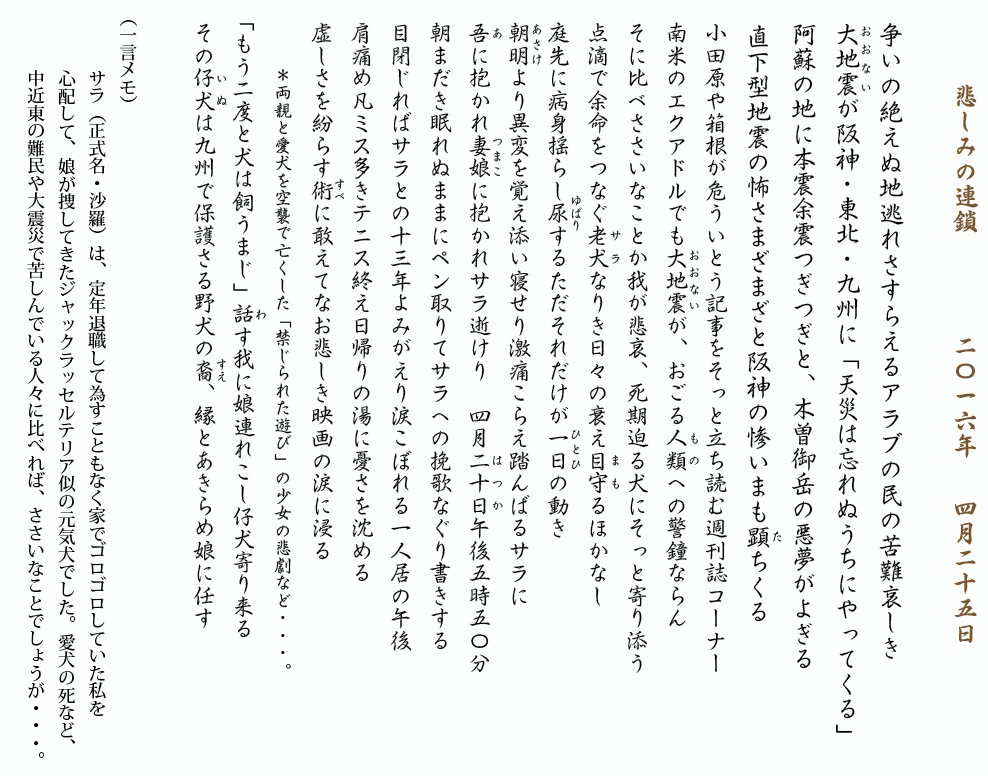 悲しみの連鎖　　二〇一六年　四月二十五日
争いの絶えぬ地逃れさすらえるアラブの民の苦難哀しき
大地震が阪神・東北・九州に「天災は忘れぬうちにやってくる」
阿蘇の地に本震余震つぎつぎと、木曽御岳の悪夢がよぎる
直下型地震の怖さまざまざと阪神の惨いまも顕ちくる
小田原や箱根が危ういとう記事をそっと立ち読む週刊誌コーナー
南米のエクアドルでも大地震が、おごる人類への警鐘ならん
そに比べささいなことか我が悲哀、死期迫る犬にそっと寄り添う
点滴で余命をつなぐ老犬なりき日々の衰え目守るほかなし
庭先に病身揺らし尿するただそれだけが一日の動き
朝明より異変を覚え添い寝せり激痛こらえ踏んばるサラに
吾に抱かれ妻娘に抱かれサラ逝けり　四月二十日午後五時五〇分
朝まだき眠れぬままにペン取りてサラへの挽歌なぐり書きする
目閉じればサラとの十三年よみがえり涙こぼれる一人居の午後
肩痛め凡ミス多きテニス終え日帰りの湯に憂さを沈める
虚しさを紛らす術に敢えてなお悲しき映画の涙に浸る
＊両親と愛犬を空襲で亡くした「禁じられた遊び」の少女の悲劇など・・・。
「もう二度と犬は飼うまじ」話す我に娘連れこし仔犬寄り来る
その仔犬は九州で保護さる野犬の裔、縁とあきらめ娘に任す
（一言メモ）
サラ（正式名・沙羅）は、定年退職して為すこともなく家でゴロゴロしていた私を
心配して、娘が捜してきたジャックラッセルテリア似の元気犬でした。愛犬の死など、
中近東の難民や大震災で苦しんでいる人々に比べれば、ささいなことでしょうが・・・。